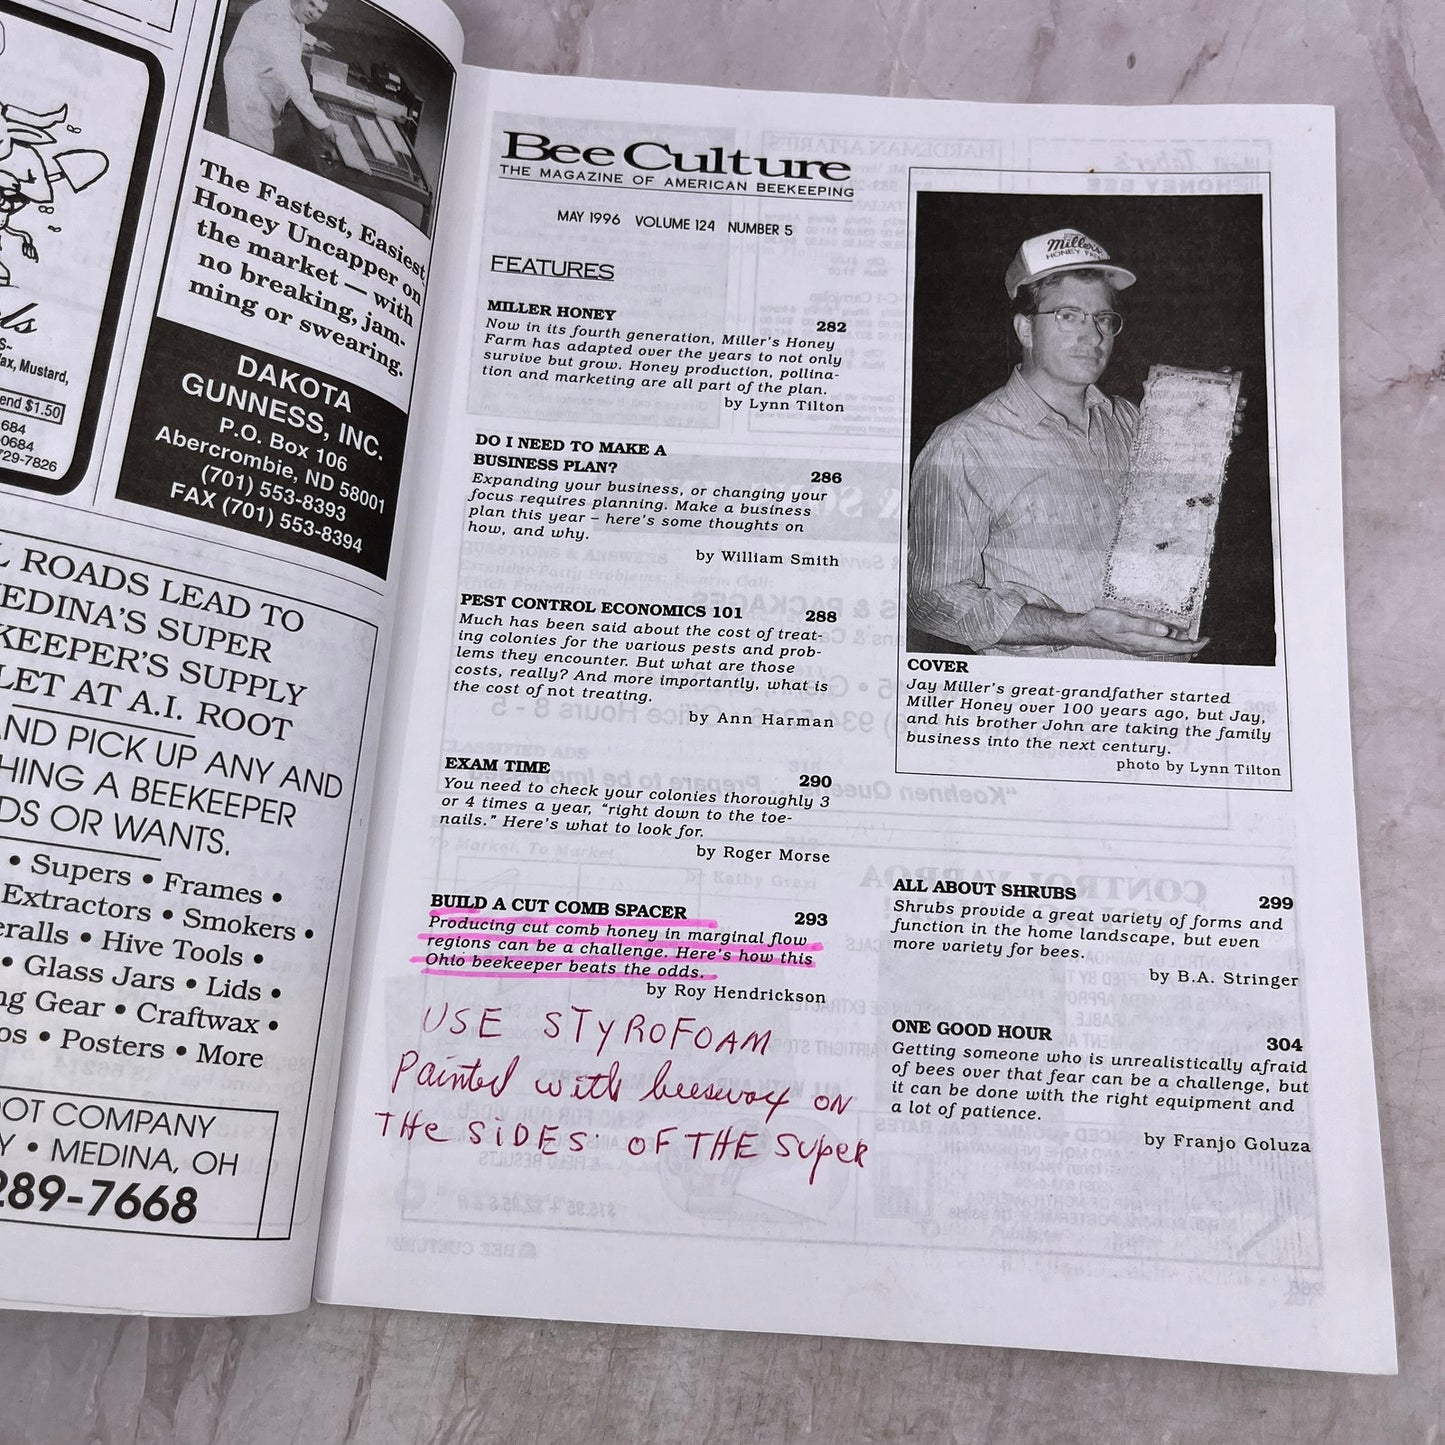 ls
S~
ax, Mustard,
end $1.50
684
-0684
729-7826
The Fastest, Easiest
Honey Uncapper on
the market — with
no breaking, jam-
ming or swearing.
DAKOTA
GUNNESS, INC.
P.O. Box 106
Abercrombie, ND 58001
(701) 553-8393
FAX (701) 553-8394
L ROADS LEAD TO
EDINA'S SUPER
KEEPER'S SUPPLY
LET AT A.I. ROOT
AND PICK UP ANY AND
HING A BEEKEEPER
DS OR WANTS.
• Supers • Frames •
Extractors • Smokers •
eralls • Hive Tools •
• Glass Jars • Lids •
ng Gear • Craftwax •
os • Posters • More
OOT COMPANY
Y • MEDINA, OH
289-7668
Bee Culture
THE MAGAZINE OF AMERICAN BEEKEEPING
MAY 1996 VOLUME 124 NUMBER 5
FEATURES
MILLER HONEY 282
Now in its fourth generation, Miller's Honey
Farm has adapted over the years to not only
survive but grow. Honey production, pollina-
tion and marketing are all part of the plan.
by Lynn Tilton
DO I NEED TO MAKE A
BUSINESS PLAN? 286
Expanding your business, or changing your
focus requires planning. Make a business
plan this year – here's some thoughts on
how, and why.
by William Smith
PEST CONTROL ECONOMICS 101 288
Much has been said about the cost of treat-
ing colonies for the various pests and prob-
lems they encounter. But what are those
costs, really? And more importantly, what is
the cost of not treating.
by Ann Harman
EXAM TIME 290
You need to check your colonies thoroughly 3
or 4 times a year, "right down to the toe-
nails." Here's what to look for.
by Roger Morse
BUILD A CUT COMB SPACER 293
Producing cut comb honey in marginal flow
regions can be a challenge. Here's how this
Ohio beekeeper beats the odds.
by Roy Hendrickson
USE STYROFOAM
Painted with beeswax ON
THE SIDES OF THE SUPER
Miller's
HONEY FARM
COVER
Jay Miller's great-grandfather started
Miller Honey over 100 years ago, but Jay,
and his brother John are taking the family
business into the next century.
photo by Lynn Tilton
ALL ABOUT SHRUBS 299
Shrubs provide a great variety of forms and
function in the home landscape, but even
more variety for bees.
by B.A. Stringer
ONE GOOD HOUR 304
Getting someone who is unrealistically afraid
of bees over that fear can be a challenge, but
it can be done with the right equipment and
a lot of patience.
by Franjo Goluza